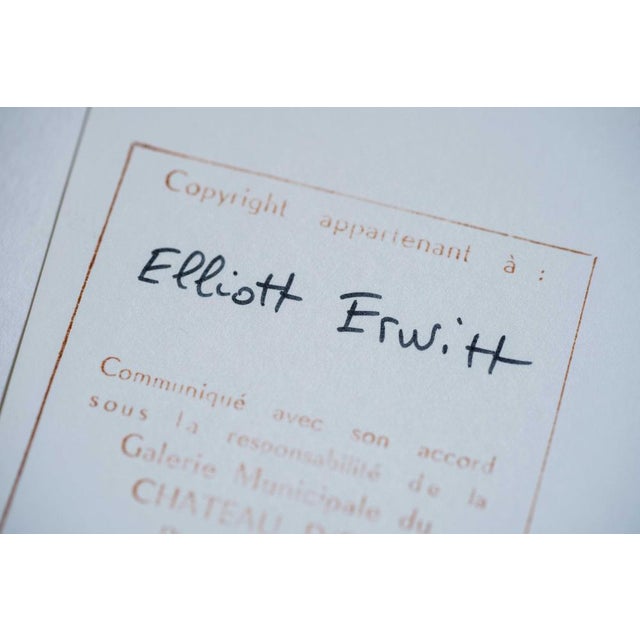 Copyright appartenant à :
Elliott Erwitt
Communiqué avec son accord
sous la responsabilité de la
Galerie Municipale du
CHATEAU